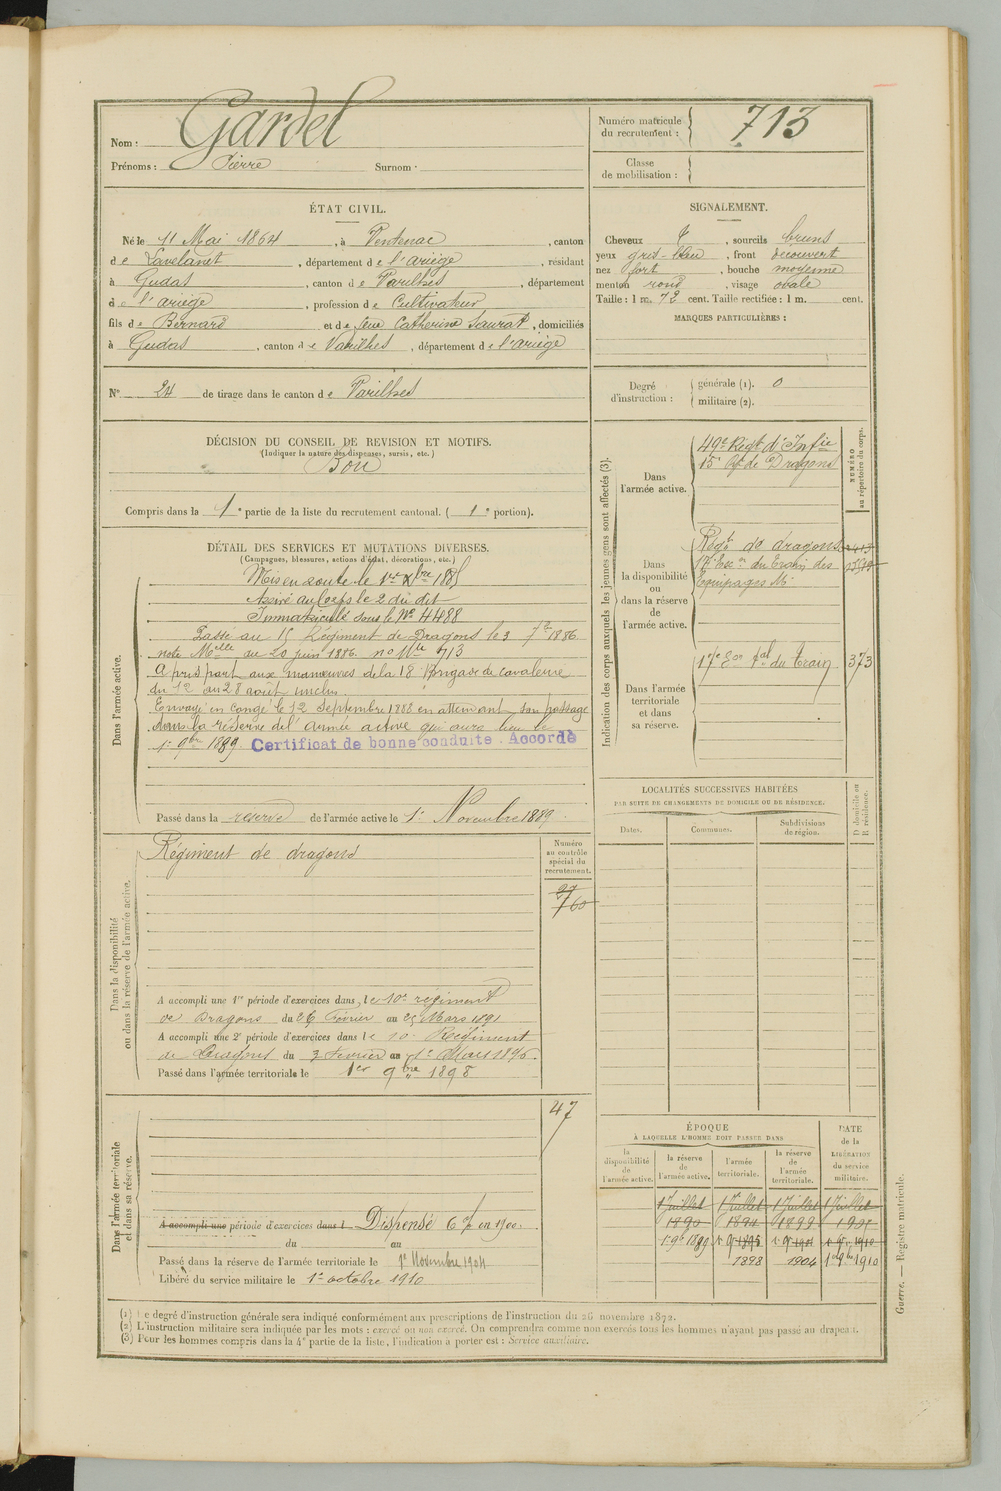 Nom : Gardel
Prénoms : Pierre Surnom :
Numéro matricule du recrutement : 713
Classe de mobilisation :
ÉTAT CIVIL.
Né le 11 Mai 1864, à Ventenac, canton
de Lavelanet, département de l'ariège, résidant
à Gudas, canton de Varilhes, département
de l'ariège, profession de Cultivateur
fils de Bernard et de feue Catherine Saurat, domiciliés
à Gudas, canton de Varilhes, département de l'ariège
N° 24 de tirage dans le canton de Varilhes
SIGNALEMENT.
Cheveux , sourcils bruns
yeux gris-bleu, front découvert
nez fort, bouche moyenne
menton rond, visage ovale
Taille : 1 m. 72 cent. Taille rectifiée : 1 m. cent.
MARQUES PARTICULIÈRES :
Degré d'instruction : générale (1). 0
militaire (2).
DÉCISION DU CONSEIL DE REVISION ET MOTIFS.
(Indiquer la nature des dispenses, sursis, etc.)
Bon
Compris dans la 1e partie de la liste du recrutement cantonal. ( 1e portion).
DÉTAIL DES SERVICES ET MUTATIONS DIVERSES.
(Campagnes, blessures, actions d'éclat, décorations, etc.)
Dans l'armée active.
Mis en route le 1er Xbre 1885
Arrivé au Corps le 2 du dit
Immatriculé sous le N° 4488
Passé au 15 Régiment de Dragons le 3 7bre 1886
note Melle au 20 juin 1886. no Mle 713
A pris part aux manœuvres de la 18 Brigade de cavalerie
du 12 au 28 août inclus.
Envoyé en congé le 12 Septembre 1888 en attendant son passage
dans la réserve de l'armée active qui aura lieu le
1er 9bre 1889 Certificat de bonne conduite Accordé
Passé dans la réserve de l'armée active le 1er Novembre 1889.
Indication des corps auxquels les jeunes gens sont affectés (3).
NUMÉRO au répertoire du corps.
Dans l'armée active.
49e Régt d'Infie
15e Rgt de Dragons
Dans la disponibilité ou dans la réserve de l'armée active.
Régt de dragons
17e Esc on du train des
Equipages Mi
Dans l'armée territoriale et dans sa réserve.
17e Esc on tal du Train 373
LOCALITÉS SUCCESSIVES HABITÉES
PAR SUITE DE CHANGEMENTS DE DOMICILE OU DE RÉSIDENCE.
Dates. Communes. Subdivisions de région. D domicile ou R résidence.
Dans la disponibilité ou dans la réserve de l'armée active.
Régiment de dragons
Numéro au contrôle spécial du recrutement.
27
760
A accompli une 1re période d'exercices dans le 10e régiment
de Dragons du 26 Février au 25 Mars 1891
A accompli une 2e période d'exercices dans le 10e Régiment
de Dragons du 3 Février au 1er Mars 1896.
Passé dans l'armée territoriale le 1er 9bre 1898
Dans l'armée territoriale et dans sa réserve.
47
A accompli une période d'exercices dans l Dispensé 6% en 1900.
du au
Passé dans la réserve de l'armée territoriale le 1er Novembre 1904
Libéré du service militaire le 1er octobre 1910
ÉPOQUE
À LAQUELLE L'HOMME DOIT PASSER DANS
DATE de la LIBÉRATION du service militaire.
la disponibilité de l'armée active. la réserve de l'armée active. l'armée territoriale. la réserve de l'armée territoriale.
1 Juillet 1 Juillet 1 Juillet 1 Juillet
1890 1894 1899 1905
1er 9bre 1889 1er 9bre 1895 1er 9bre 1901 1er 9bre 1910
1898 1904 1er 9bre 1910
(1) Le degré d'instruction générale sera indiqué conformément aux prescriptions de l'instruction du 26 novembre 1872.
(2) L'instruction militaire sera indiquée par les mots : exercé ou non exercé. On comprendra comme non exercés tous les hommes n'ayant pas passé au drapeau.
(3) Pour les hommes compris dans la 4e partie de la liste, l'indication à porter est : Service auxiliaire.
Guerre. — Registre matricule.